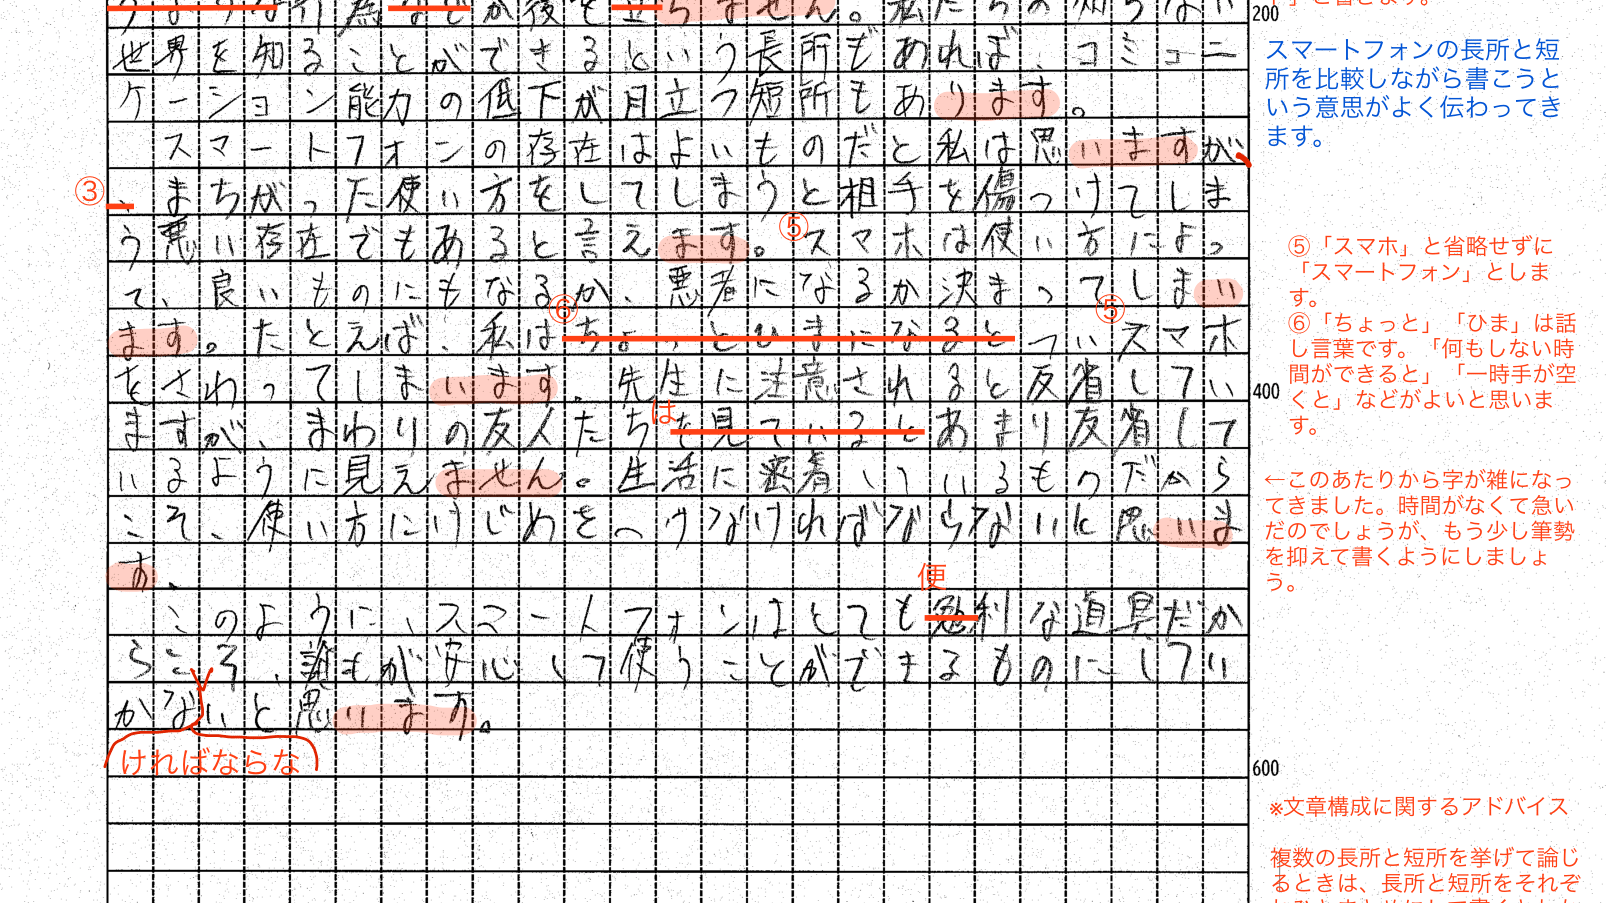 世界を知ることができるという長所もあれば、コミュニ
ケーション能力の低下が目立つ短所もあります。
スマートフォンの存在はよいものだと私は思いますが
、まちがった使い方をしてしまうと相手を傷つけてしま
う悪い存在でもあると言えます。スマホは使い方によっ
て、良いものにもなるか、悪者になるか決まってしまい
ます。たとえば、私はちょっとひまになるとついスマホ
をさわってしまいます。先生に注意されると反省してい
ますが、まわりの友人たちを見ているとあまり反省して
いるように見えません。生活に密着しているものだから
こそ、使い方にけじめをつけなければならないと思いま
す。
このように、スマートフォンはとても勉利な道具だか
らこそ、誰もが安心して使うことができるものにしてい
かないと思います。
③
⑤
⑥
⑤
は
便
ければならな
200
400
600
スマートフォンの長所と短
所を比較しながら書こうと
いう意思がよく伝わってき
ます。
⑤「スマホ」と省略せずに
「スマートフォン」としま
す。
⑥「ちょっと」「ひま」は話
し言葉です。「何もしない時
間ができると」「一時手が空
くと」などがよいと思いま
す。
←このあたりから字が雑になっ
てきました。時間がなくて急い
だのでしょうが、もう少し筆勢
を抑えて書くようにしましょ
う。
※文章構成に関するアドバイス
複数の長所と短所を挙げて論じ
るときは、長所と短所をそれぞ